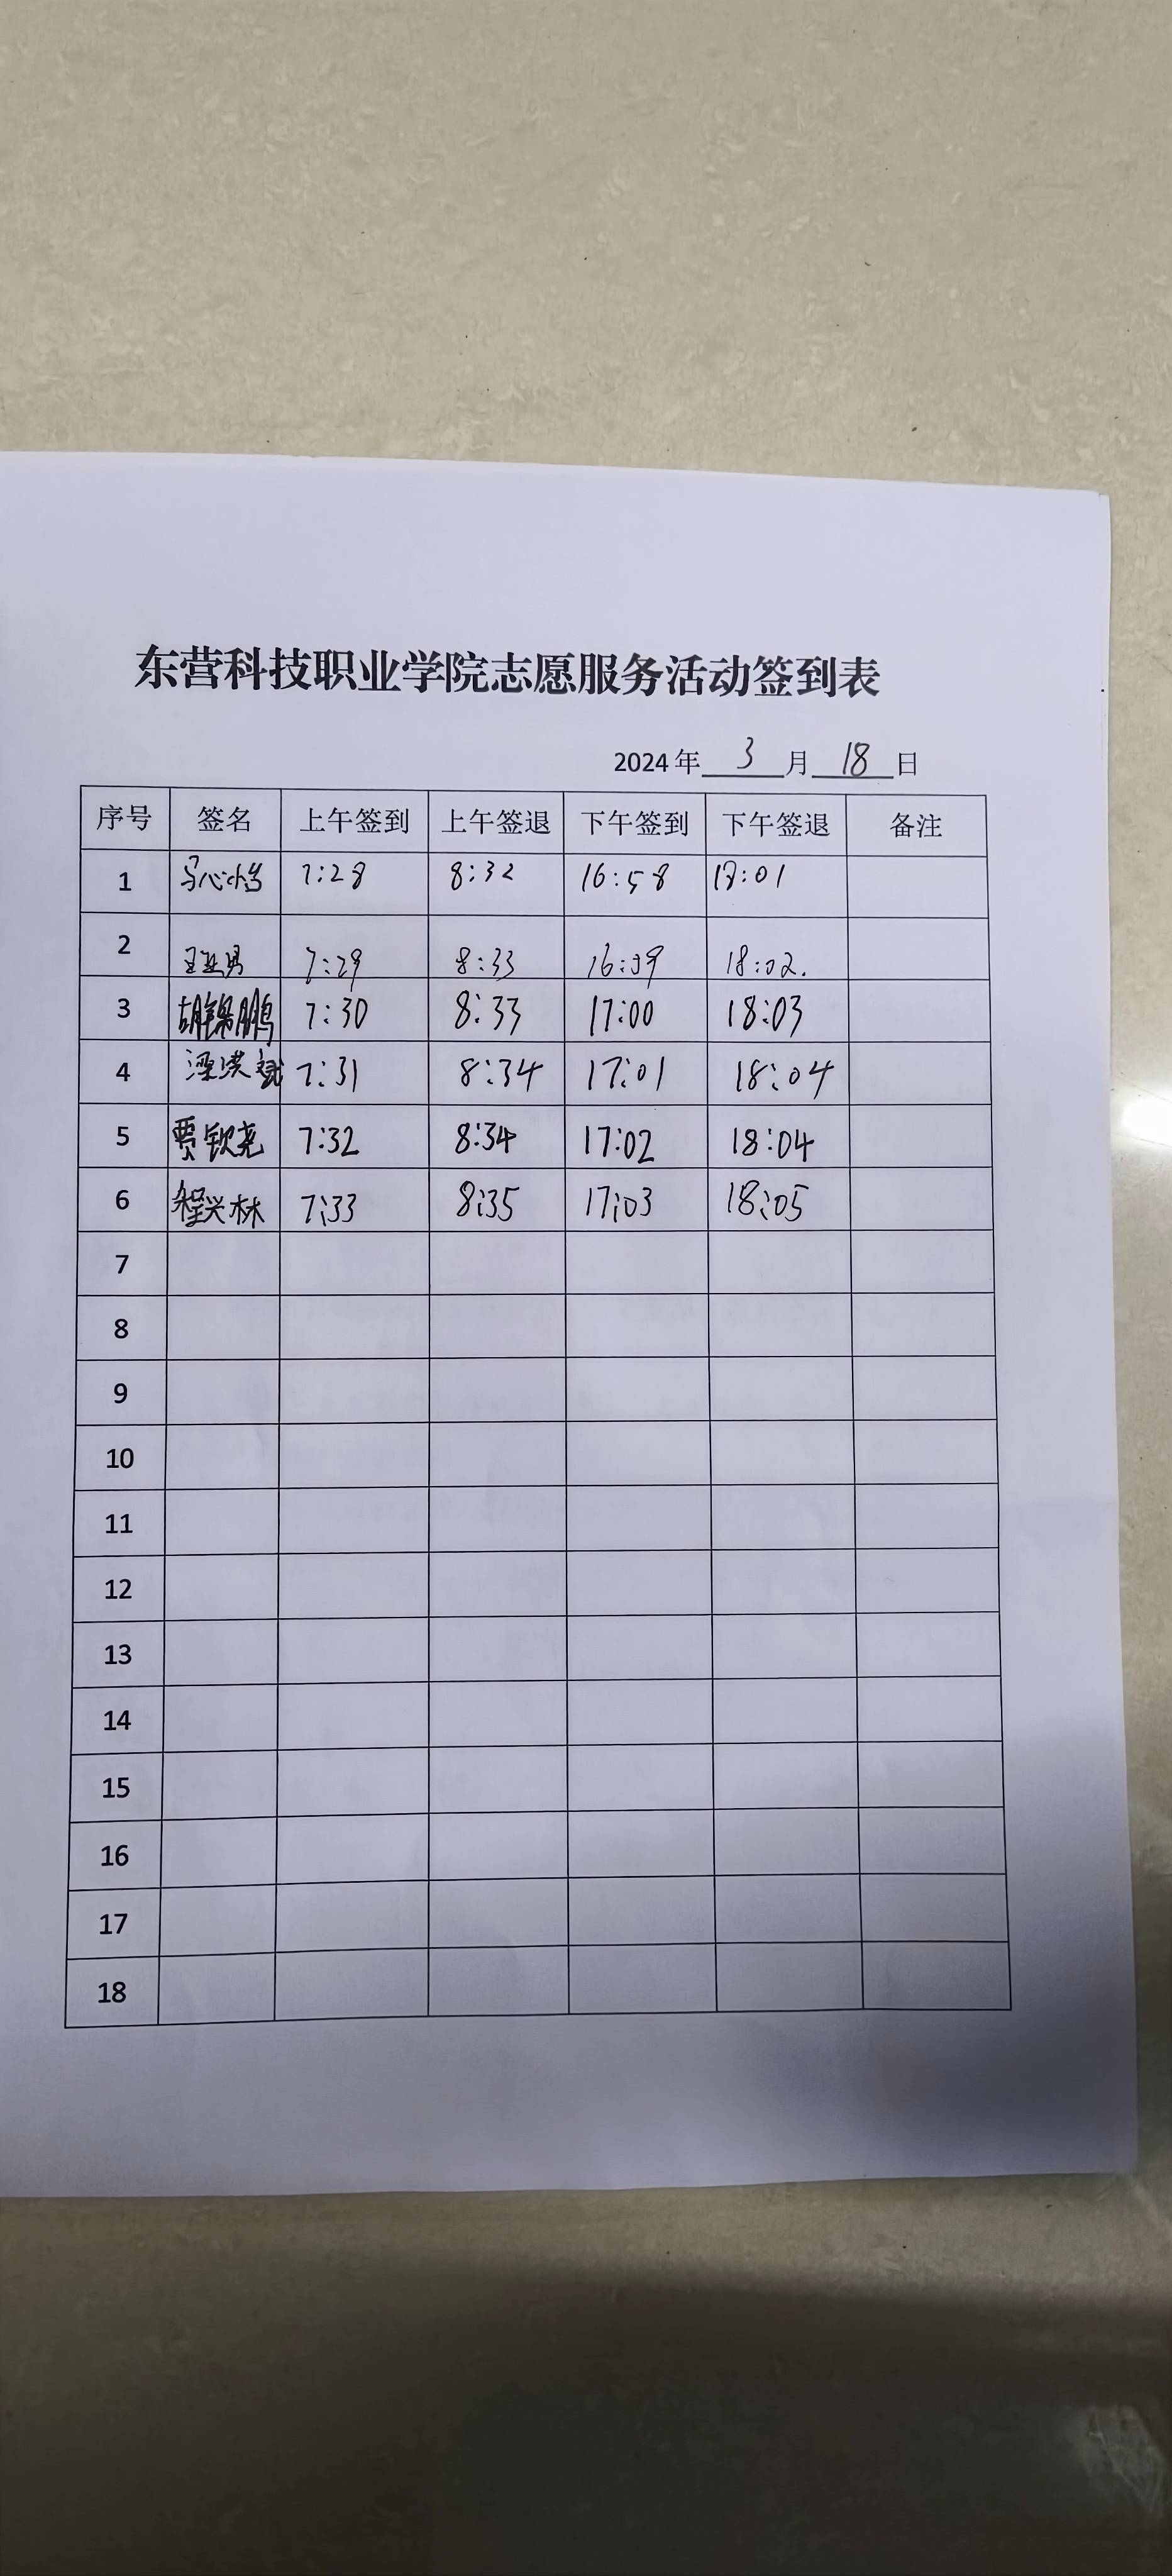 东营科技职业学院志愿服务活动签到表
2024年 3 月 18 日
序号 签名 上午签到 上午签退 下午签到 下午签退 备注
1 7:28 8:32 16:58 18:01
2 王亚男 7:29 8:33 16:59 18:02.
3 胡锦鹏 7:30 8:33 17:00 18:03
4 梁洪斌 7:31 8:34 17:01 18:04
5 贾钦尧 7:32 8:34 17:02 18:04
6 程兴林 7:33 8:35 17:03 18:05
7
8
9
10
11
12
13
14
15
16
17
18